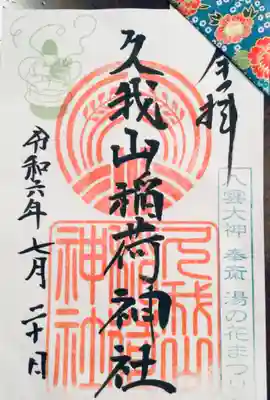 奉拝
八雲大神 奉斎 湯の花まつり
久我山稲荷神社
久我山稲荷神社
令和六年七月二十日